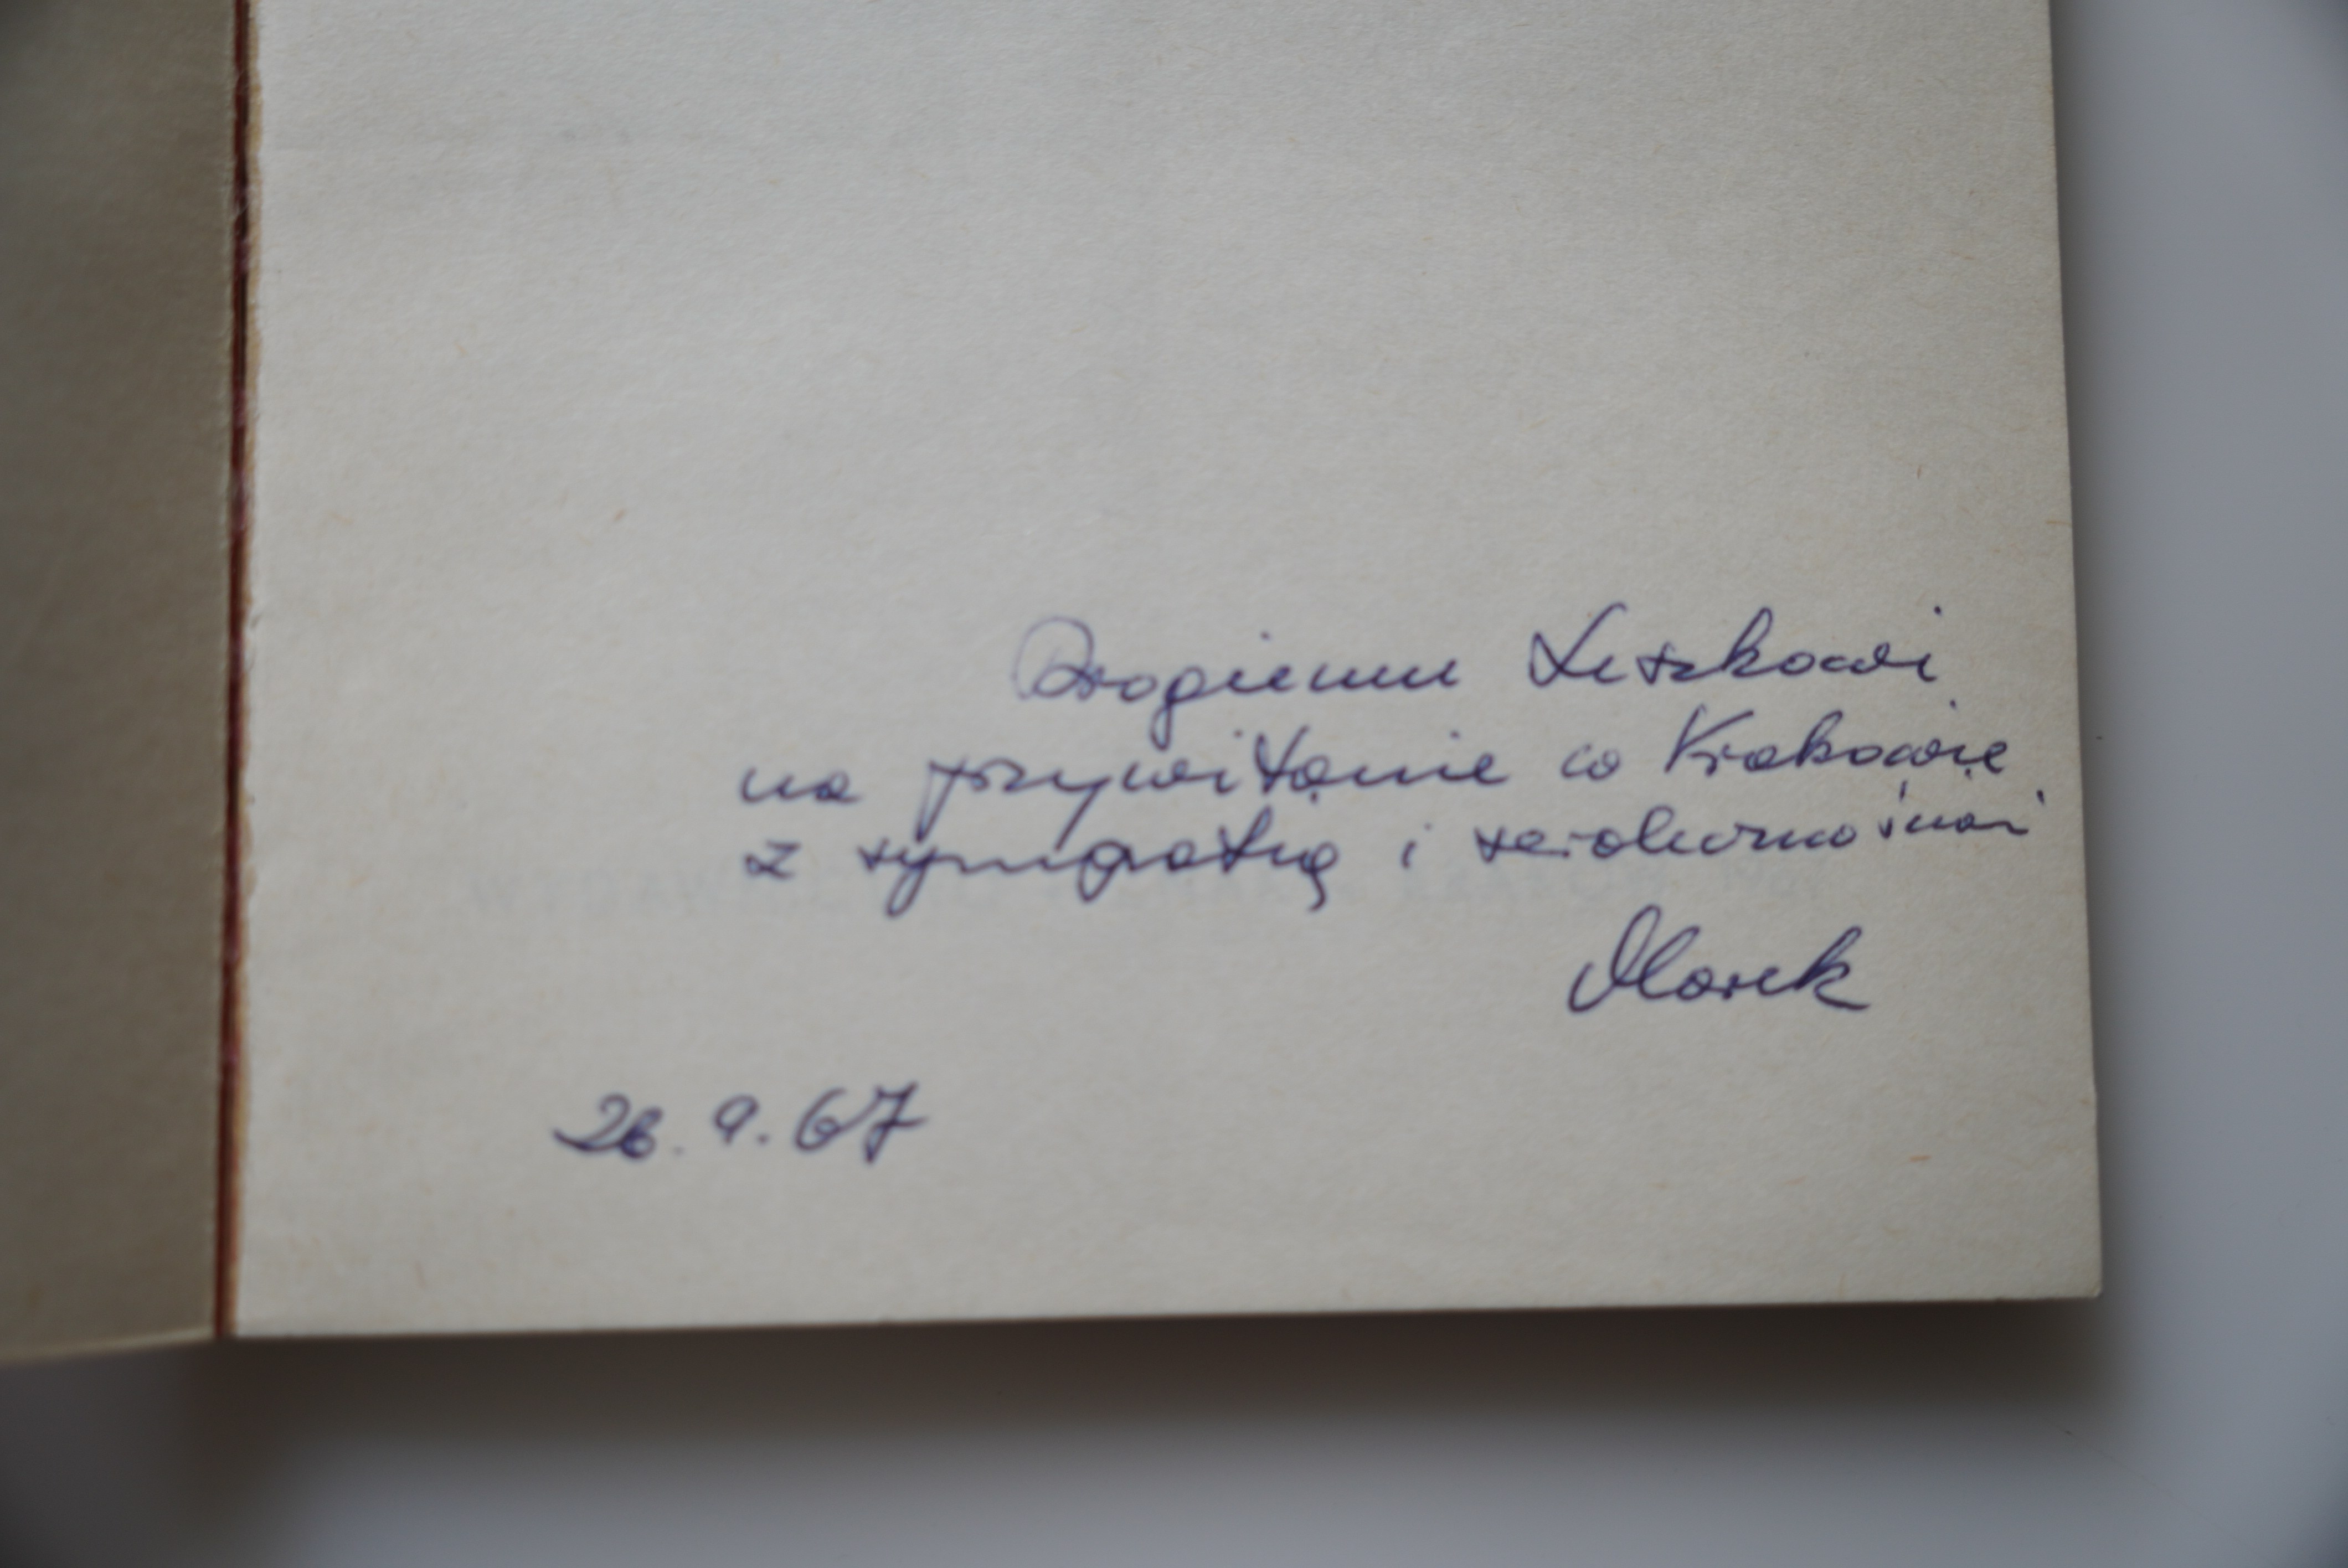 Drogiemu Leszkowi
na przywitanie w Krakowie
z sympatią i serdecznościami
Marek
26.9.67